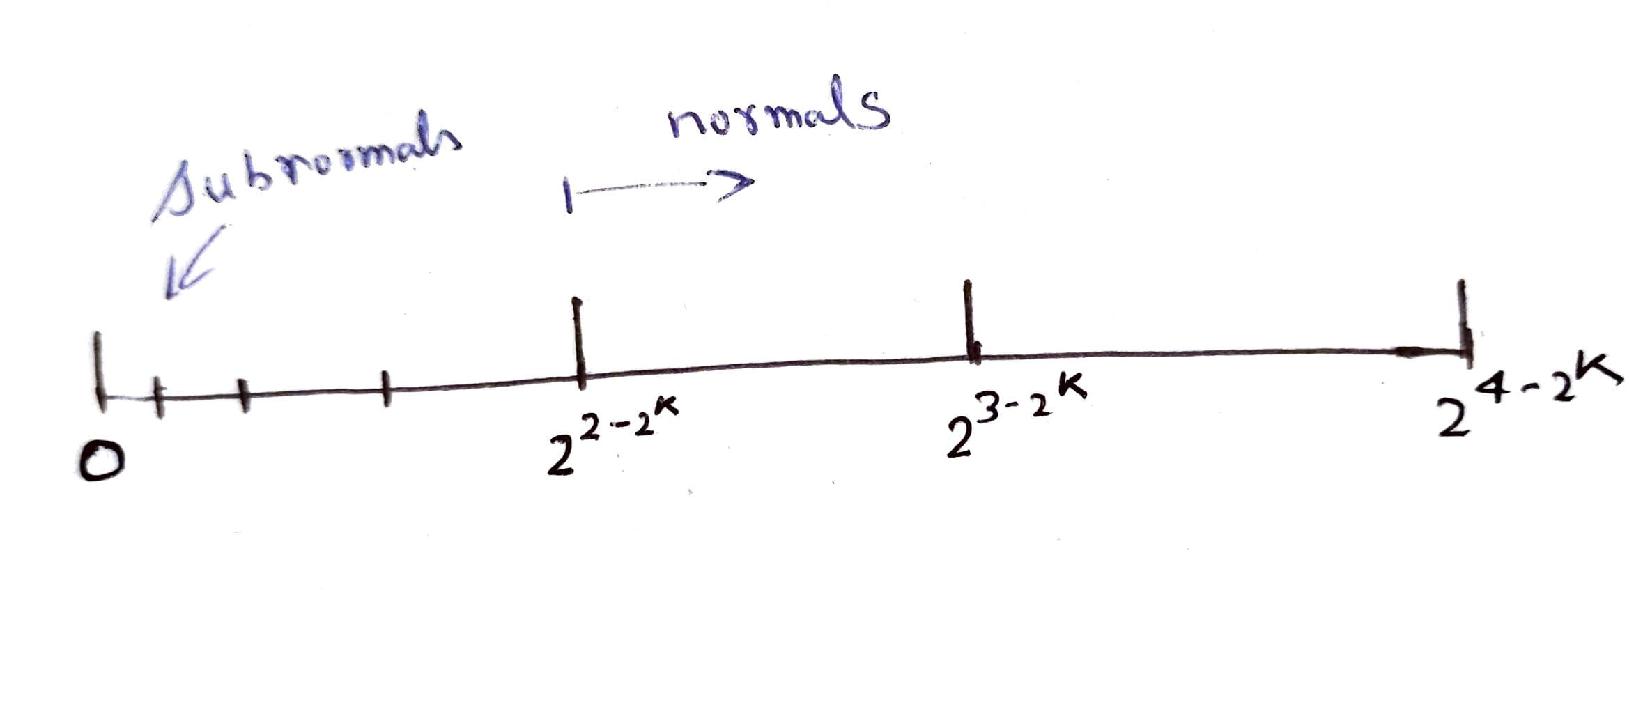 subnormals
normals
0
2^{2-2^K}
2^{3-2^K}
2^{4-2^K}